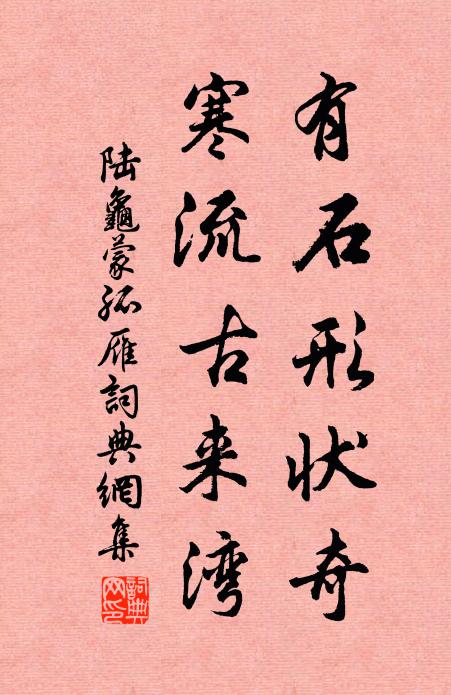 有石形状奇
寒流古来湾
陆龜蒙孤雁詞典網集
詞典网印